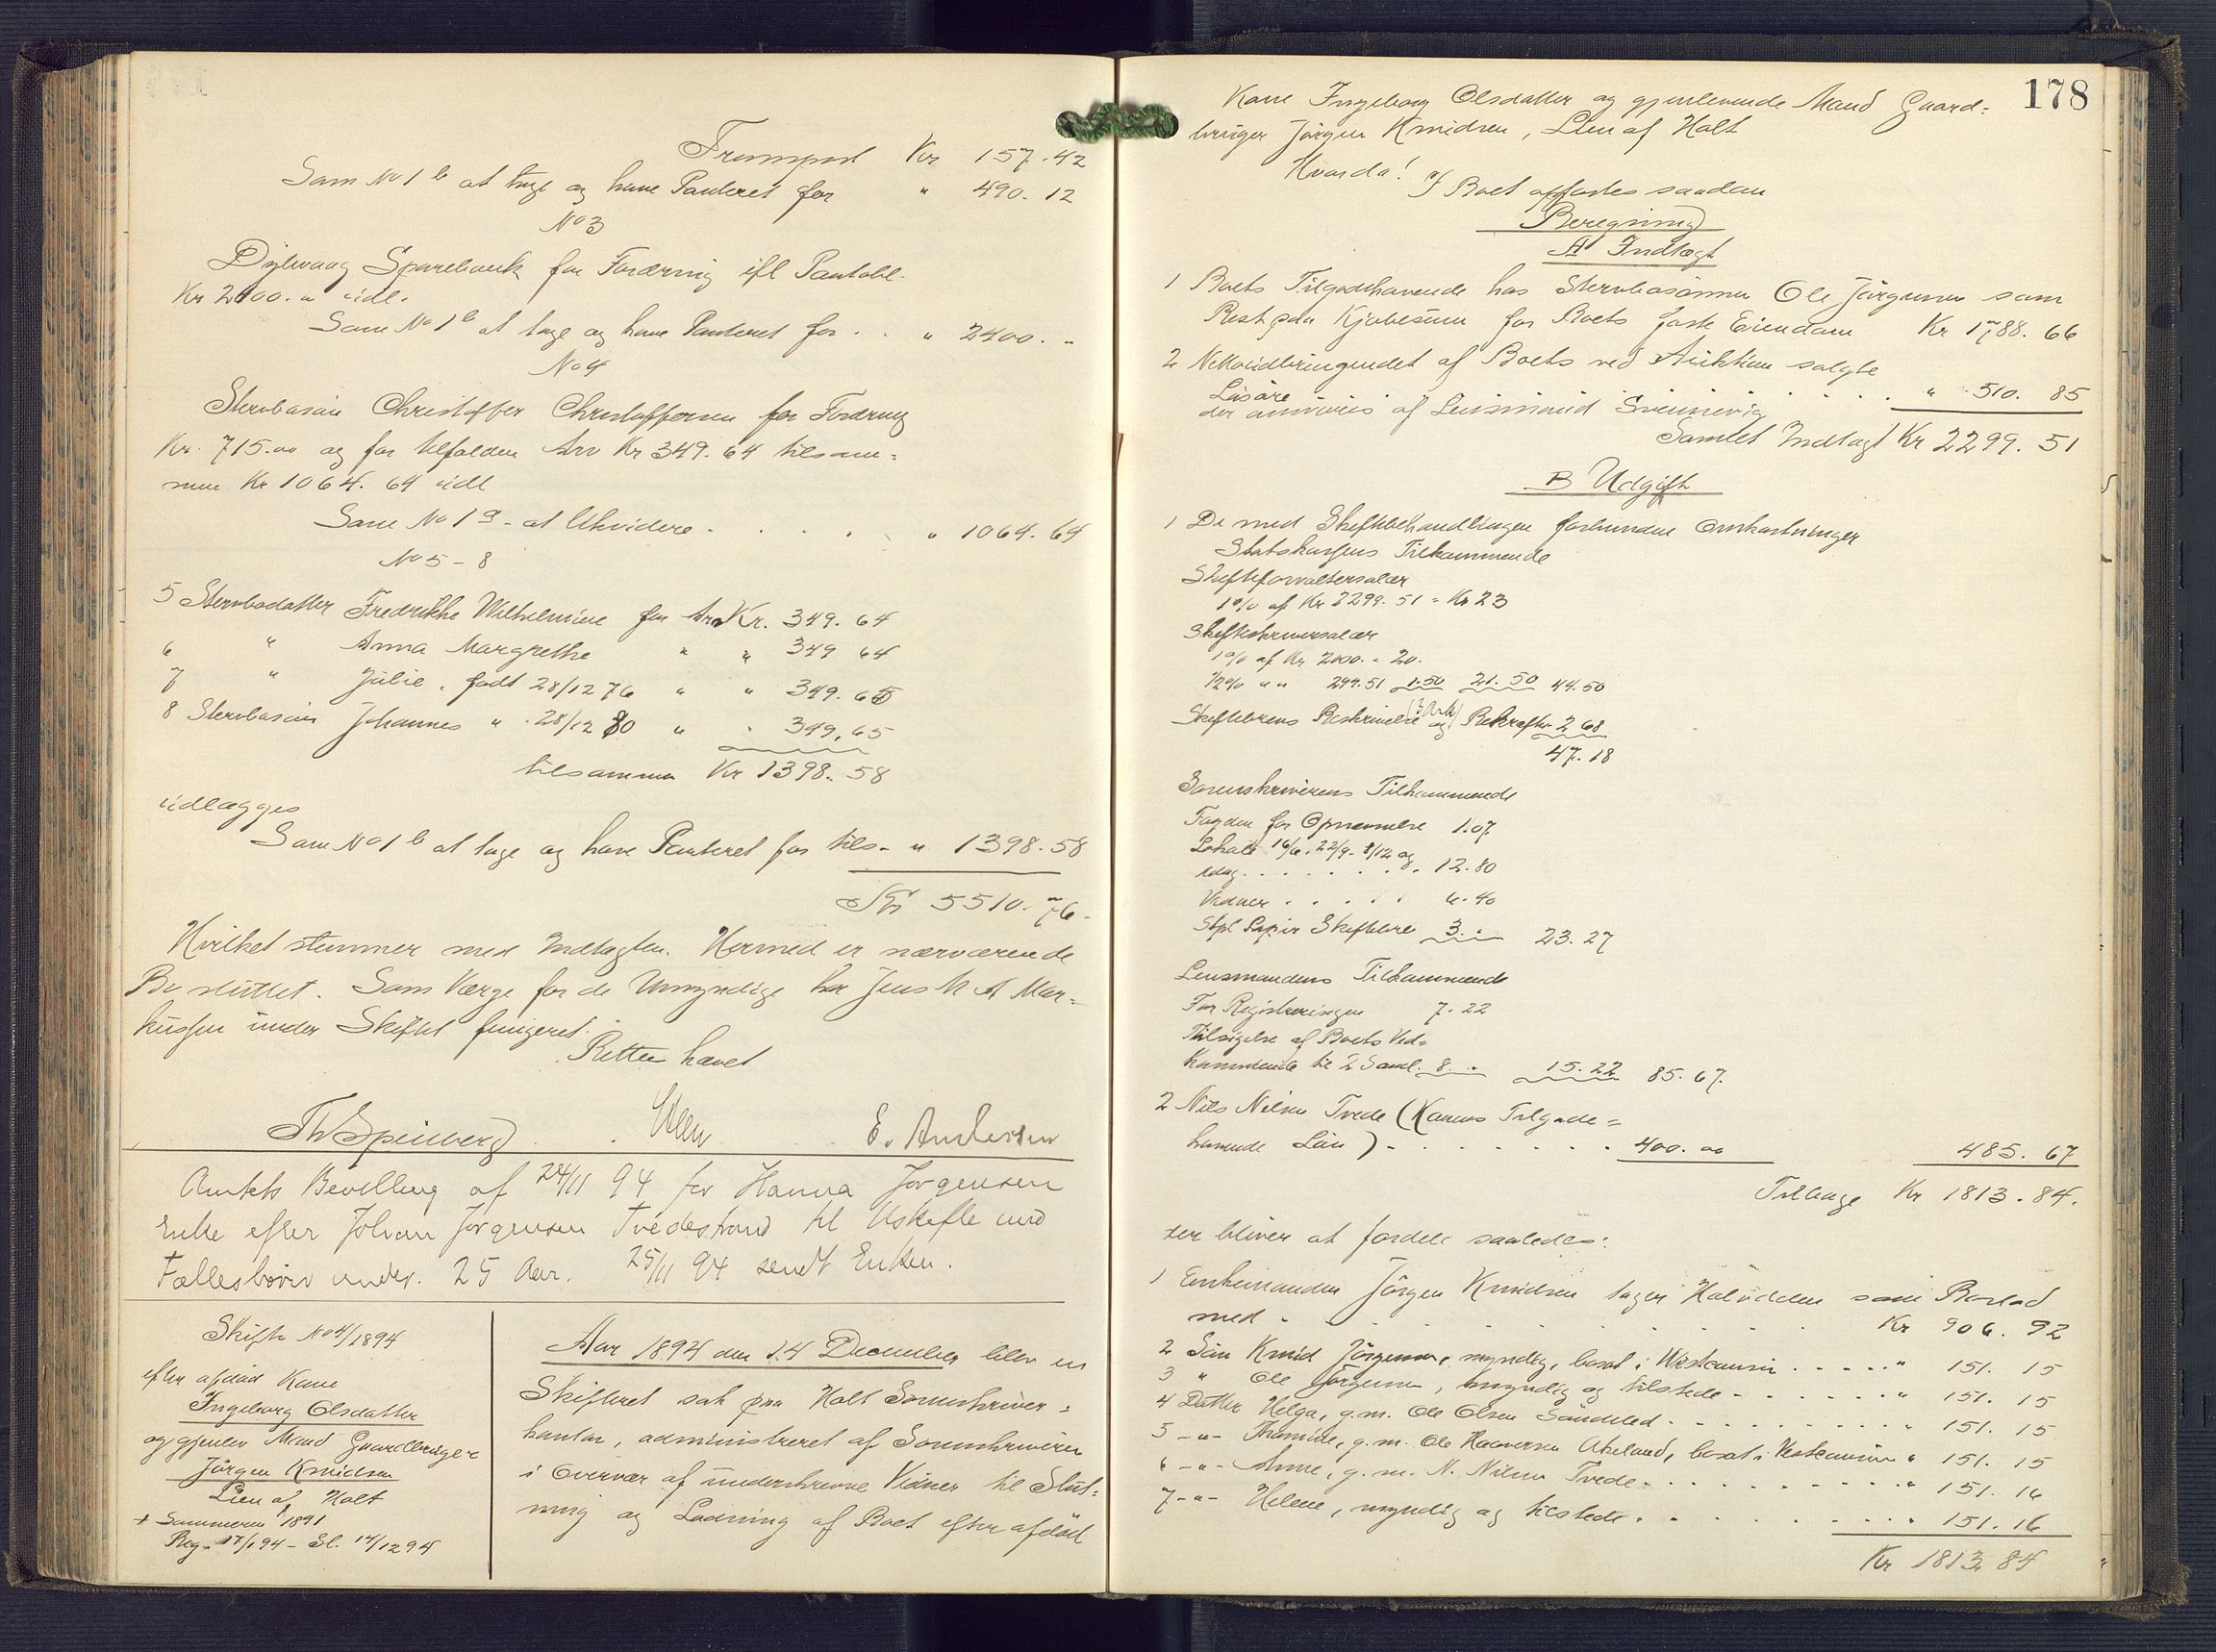 Transport Kr 157.42
Som No 1 b at tage og have Panteret for " 490.12
No 3
Dybvaag Sparebank for Fordring ifl Pantobl.
Kr 2400. " udl.
Som No 1 b at tage og have Panteret for . . " 2400. -
No 4
Stervbosøn Christoffer Christoffersen for Fordring
Kr. 715.00 og for tilfalden Arv Kr 349.64 tilsam=
men Kr 1064.64 udl
Som No 1 a - at likvidere . . . . . " 1064.64
No 5 - 8
5 Stervbodatter Fredrikke Wilhelmine for Arv Kr. 349.64
6 " Anna Margrethe " " 349 64
7 " Julie, født 28/12 76 " " 349.65
8 Stervbosøn Johannes " 28/12 80 " " 349.65
tilsammen Kr 1398.58
udlægges
Som No 1 b at tage og have Panteret for tils- " 1398.58
Kr 5510.76.
Hvilket stemmer med Indtægten. Hermed er nærværende
Bo sluttet. Som Værge for de Umyndige har Jens M A Mar=
kussen under Skiftet fungeret.
Retten hævet
E. Andersen
Amtets Bevilling af 24/11 94 for Hanna Jørgensen
Enke efter Johan Jørgensen Tvedestrand til Uskifte med
Fællesbørn under 25 Aar. 25/11 94 sendt Enken.
Skifte No 4/1894
efter afdød Kone
Ingeborg Olsdatter
og gjenlev Mand Gaardbruger
Jørgen Knudsen
Lien af Holt
+ Sommeren 1891
Reg- 17/1 94 - Sl. 14/12 94
Aar 1894 den 14 December blev en
Skifteret sat paa Holt Sorenskriver=
kontor, administreret af Sorenskriveren
i Overvær af underskrevne Vidner til Slut=
ning og Lodning af Boet efter afdød
178
Kone Ingeborg Olsdatter og gjenlevende Mand Gaard=
bruger Jørgen Knudsen, Lien af Holt
Hvorda!
Boet opgjortes saadan
Beregning
A Indtægt
1 Boets Tilgodehavende hos Stervbosønnen Ole Jørgensen som
Rest paa Kjøbesum for Boets faste Eiendom Kr 1788.66
2 Nettoudbringendet af Boets ved Auktion solgte
Løsøre . . . . . . " 510.85
der anvises af Lensmand Svennevig
Samlet Indtægt Kr 2299.51
B Udgift
1 De med Skiftebehandlingen forbundne Omkostninger
Statskassens Tilkommende
Skifteforvaltersalær
1% af Kr 2299.51 = Kr 23
Skifteskriversalær
1% af Kr 2000. = 20.
1/2% " " 299.51 1.50 21.50 44.50
Skiftebrevs Beskrivelse (3 Ark) og Bekræftn 2 68
47.18
Sorenskriverens Tilkommende
Fogden for Opnævnelse 1.07
Lokale 16/6, 22/9 - 8/12 og
idag . . . . . . . 12.80
Vidner . . . . . 6.40
Stpl Papir Skiftebre 3. " 23.27
Lensmandens Tilkommende
For Registreringen 7.22
Tilsigelse af Boets Ved=
kommende til 2 Saml. 8. " 15.22 85.67.
2 Nils Nilsen Tvede (Konens Tilgode=
havende Løn) - . . . . . . 400.00 485.67
Tilbage Kr 1813.84.
der bliver at fordele saaledes:
1 Enkemanden Jørgen Knudsen tager Halvdelen som Boslod
med . . . . . . . . . . Kr 906.92
2 Søn Knud Jørgensen, myndig, bosat i Vestamerika . . . . . " 151.15
3 " Ole Jørgensen, myndig og tilstede . . . . . . " 151.15
4 Datter Helga, g.m. Ole Olsen Søndeled . . . . . . . . " 151.15
5 -"- Thomine, g.m. Ole Haaversen Akeland, bosat i Vestamerika " 151.15
6 -"- Anne, g.m. N. Nilsen Tvede . . . . . . . . . " 151.16
7 -"- Helene, myndig og tilstede . . . . . . . . . " 151.16
Kr 1813.84